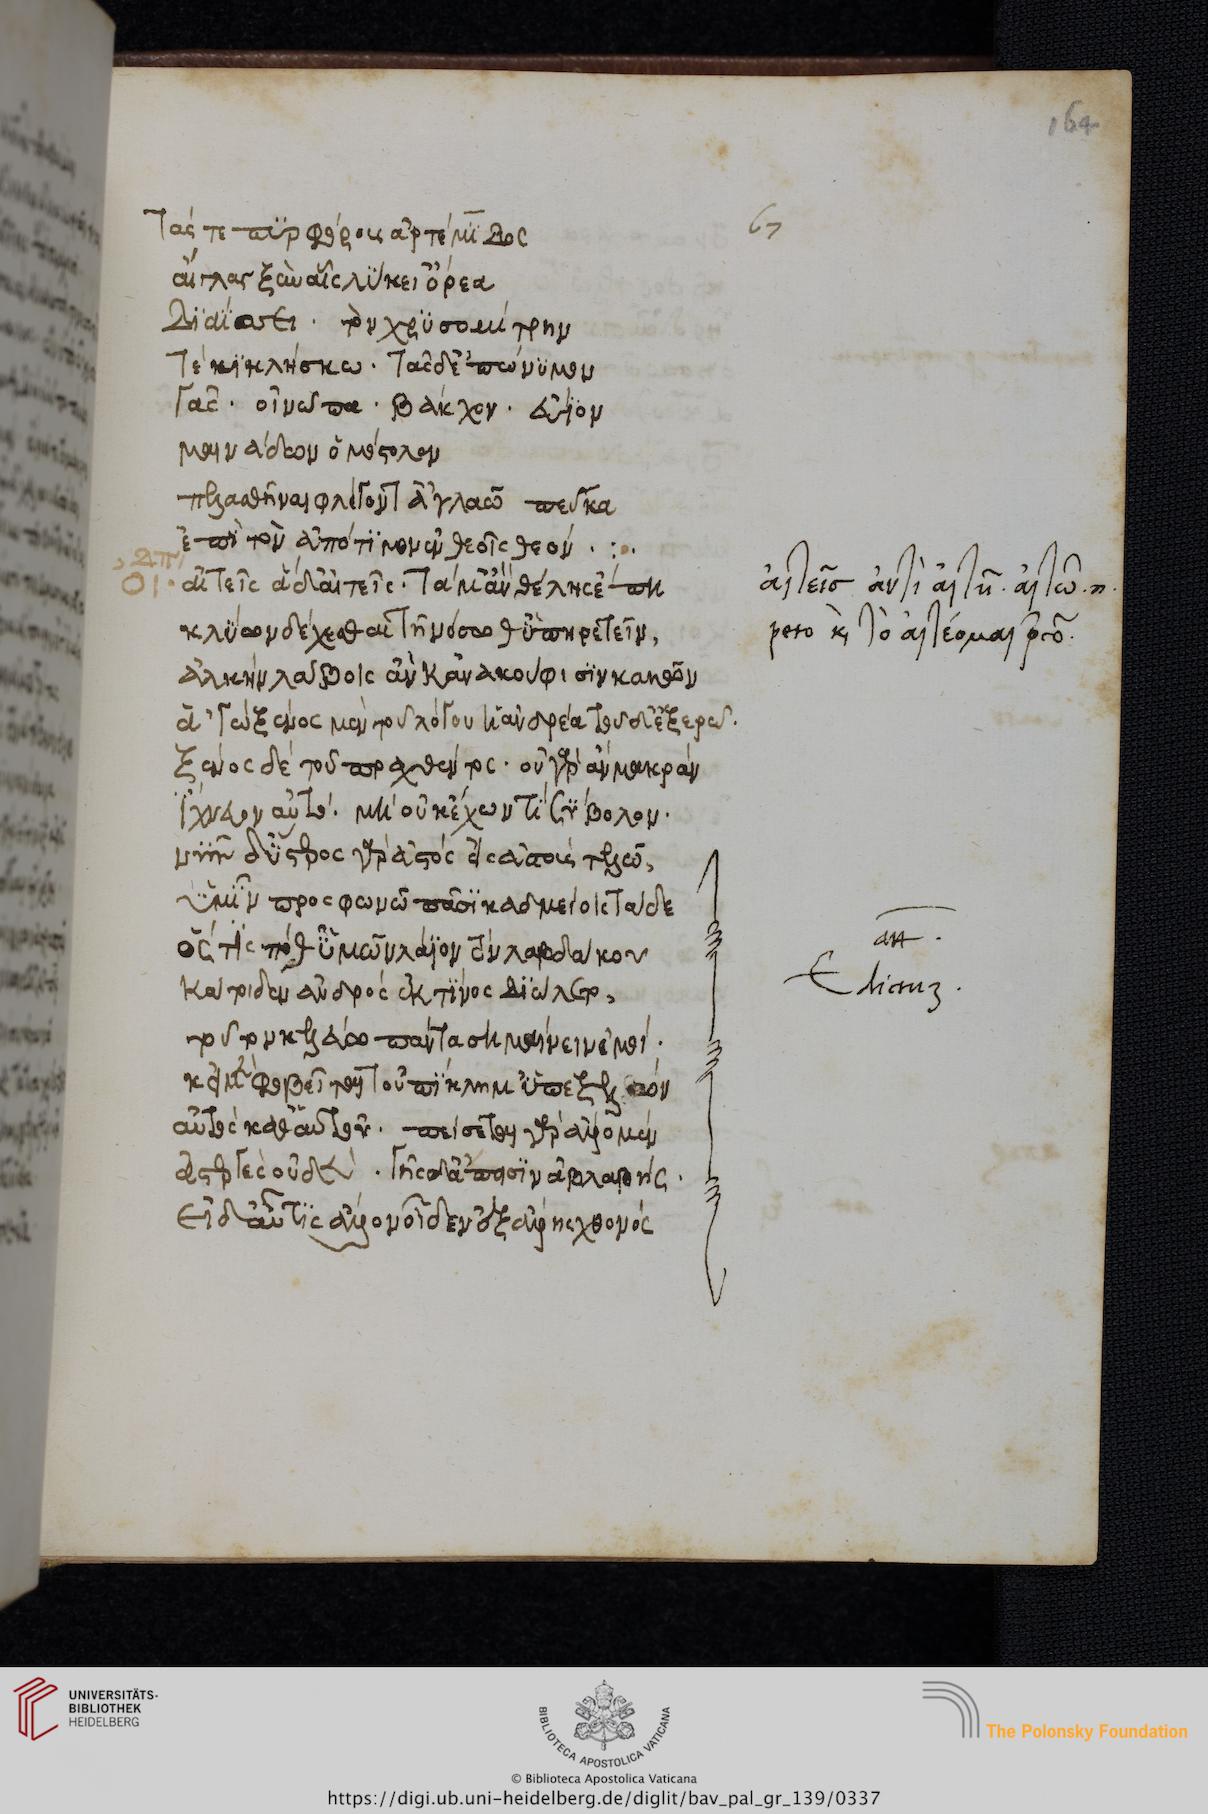 164
67
Τάς τε πυρφόρους ἀρτέμιδος
αἴγλας ξὺν αἷς λύκει ὄρεα
διαΐσσει · τὸν χρυσομίτρην
τε κικλήσκω · τᾶσδ ἐπώνυμον
γᾶς · οἰνῶπα · βάκχον · εὔϊον
μαινάδων ὁμόστολον
πελασθῆναι φλέγοντ ἀγλαῶπι πεύκα
ἐπὶ τὸν ἀπότιμον ἐν θεοῖς θεόν · :·
ΟΙ · αἰτεῖς ἃ δ αἰτεῖς · τἄμ ἐὰν θέλῃς ἔπη
κλύων δέχεσθαι τῇ νόσῳ θ ὑπηρετεῖν,
ἀλκὴν λάβοις ἂν κἀνακούφισιν κακῶν
ἁ γὼ ξένος μὲν τοῦ λόγου τοῦδ ἐξερῶ.
ξένος δὲ τοῦ πραχθέντος · οὐ γὰρ ἂν μακρὰν
ἴχνευον αὐτός · μὴ οὐκ ἔχων τι σύμβολον ·
νῦν δ ὕστερος γὰρ ἀστὸς εἰς ἀστοὺς τελῶ,
ὑμῖν προσφωνῶ πᾶσι καδμείοις τάδε
ὅς τίς ποθ ὑμῶν λάϊον τὸν λαβδάκου
κάτοιδεν ἀνδρὸς ἐκ τίνος διώλετο,
τοῦτον κελεύω πάντα σημαίνειν ἐμοί ·
κεἰ μὲν φοβεῖται τοὐπίκλημ ὑπεξελὼν
αὐτὸς καθ αὑτοῦ · πείσεται γὰρ ἄλλο μὲν
ἀστεργὲς οὐδέν · γῆς δ ἄπεισιν ἀβλαβής ·
Εἰ δ αὖ τις ἄλλον οἶδεν ἐξ ἄλλης χθονὸς
αἰτεῖσ ἀντὶ αἰτῇ · αἰτῶ ·
τὸ αἰτέομαι
UNIVERSITÄTS-
BIBLIOTHEK
HEIDELBERG
BIBLIOTECA APOSTOLICA VATICANA
The Polonsky Foundation
© Biblioteca Apostolica Vaticana
https://digi.ub.uni-heidelberg.de/diglit/bav_pal_gr_139/0337